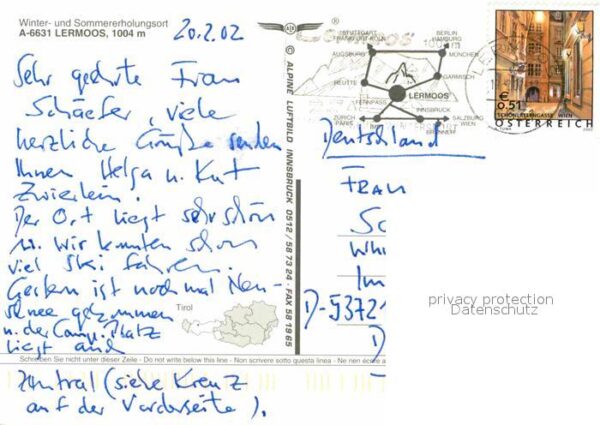 Winter- und Sommererholungsort
A-6631 LERMOOS, 1004 m
20.2.02
Sehr geehrte Frau
Schäefer, viele
herzliche Grüße senden
Ihnen Helga u. Kurt
Zwierlein.
Der Ort liegt sehr schön
u. wir konnten schon
viel Ski fahren.
Gestern ist noch mal Neu-
schnee gekommen
u. der Camp. Platz
liegt auch
Tirol
Schreiben Sie nicht unter dieser Zeile - Do not write below this line - Non scrivere sotto questa linea - Ne rien écrire
zentral (siehe Kreuz
auf der Vorderseite).
© ALPINE LUFTBILD INNSBRUCK 0512 / 58 73 24 · FAX 58 19 65
STUTTGART
FRANKFURT-KÖLN
BERLIN
HAMBURG
AUGSBURG
MÜNCHEN
REUTTE
GARMISCH
LERMOOS
FERNPASS
INNSBRUCK
ZÜRICH
PARIS
SALZBURG
WIEN
BRENNER
€
0,51
SCHÖNLATERNGASSE, WIEN
ÖSTERREICH
Deutschland
FRAU
Sc
Whi
Im
D-5372
D
privacy protection
Datenschutz